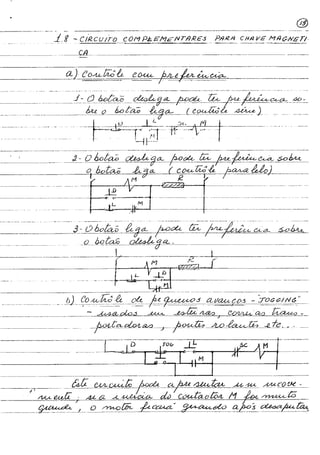 13
1.8 - CIRCUITO COMPLEMENTARES PARA CHAVE MAGNETI-
CA
a) Contrôle com preferência.
1- O botão desliga pode ter preferência so-
bre o botão liga (contrôle série)
D L SC M
M
2- O botão desliga pode ter preferência sobre
o botão liga (contrôle paralelo)
M R
D
L M
3- O botão liga pode ter preferência sobre
o botão desliga.
M R
L D
M
b) Contrôle de pequenos avanços - "JOGGING"
- usados em esteiras, correias trans-
portadoras, pontes rolantes etc..
D JOG L SC M
M
Este circuito pode apresentar um incove-
niente, se a inércia do contactor M for muito
grande, o motor ficará girando após desapertar